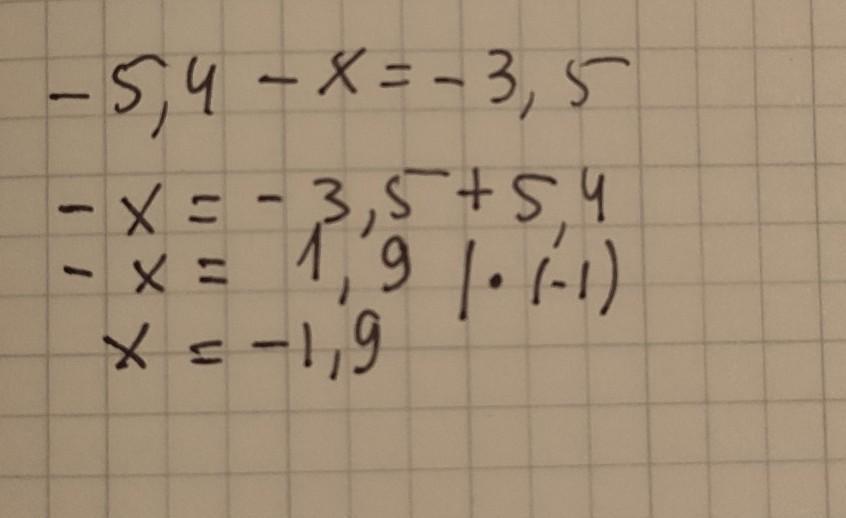 -5,4 - x = -3,5
-x = -3,5 + 5,4
-x = 1,9 |·(-1)
x = -1,9